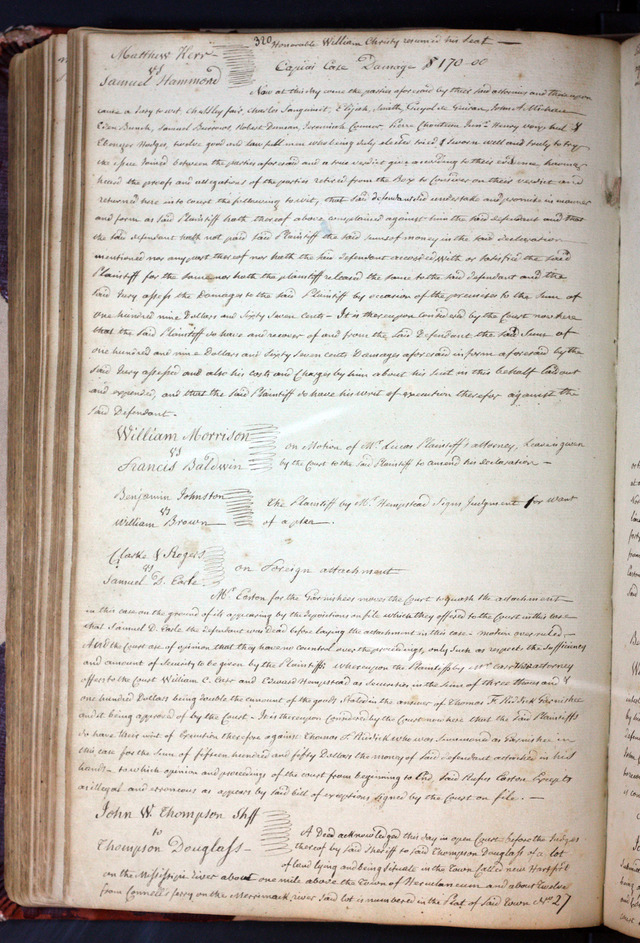 320 Honorable William Christy resumed his seat —
Matthew Kerr
vs
Samuel Hammond
Capias Case Damage $170-00
Now at this day came the parties aforesaid by their said attornies and thereupon
came a Jury to wit, Charles Sanguinet, Elijah Smith, Guyol de Guiran, John A Michau
Eden Bunch, Samuel Burrows, Robert Duncan, Jeremiah Connor, Pierre Chouteau Junr. Henry &
Ebenezer Hodges, twelve good and lawful men who being duly elected tried & sworn well and truly to try
the issue Joined between the parties aforesaid and a true verdict give according to their evidence, having
heard the proofs and allegations of the parties retired from the Bar to Consider on their verdict and
returned here into court the following to wit, that said defendant did undertake and promise in manner
and form as said Plaintiff hath thereof above complained against him the said defendant and that
the said defendant hath not paid said Plaintiff the said sums of money in the said declaration
mentioned nor any part thereof nor hath the said defendant accorded with or satisfied the said
Plaintiff for the same nor hath the plaintiff released the same to the said defendant and the
said Jury assess the Damages to the said Plaintiff by occasion of the premises to the sum of
one hundred nine Dollars and Sixty Seven cents — It is thereupon considered by the Court now here
that the said Plaintiff do have and recover of and from the said Defendant the said Sum of
one hundred and nine Dollars and Sixty Seven cents Damages aforesaid in form aforesaid by the
said Jury assessed and also his costs and Charges by him about his suit in this behalf laid out
and expended, and that the said Plaintiff do have his writ of execution therefor against the
said Defendant.
William Morrison
vs
Francis Baldwin
on Motion of Mr. Lucas Plaintiff's attorney, Leave is given
by the Court to the said Plaintiff to amend his declaration —
Benjamin Johnston
vs
William Brown
The Plaintiff by Mr. Hempstead Signs Judgment for want
of a plea.
Clarke & Rogers
vs
Samuel D. Earle
on Foreign attachment
Mr. Easton for the Garnishees moves the Court to quash the attachment
in this case on the ground of its appearing by the depositions on file which they offered to the Court in this case
that Samuel D. Earle the defendant was Dead before laying the attachment in this case — motion overruled —
And the Court are of opinion that they have no control over the proceedings, only such as respect the Sufficiency
and amount of Security to be given by the Plaintiffs whereupon the Plaintiffs by Mr. Carr their attorney
offers to the Court William C. Carr and Edward Hempstead as Securities in the sum of three thousand &
one hundred Dollars being double the amount of the goods Stated in the answer of Thomas F. Riddick Garnishee
and it being approved of by the Court — It is thereupon Considered by the Court now here that the said Plaintiffs
do have their writ of Execution therefor against Thomas F. Riddick who was Summoned as Garnishee in
this case for the Sum of fifteen hundred and fifty Dollars the money of said defendant attached in his
hands — to which opinion and proceedings of the court from beginning to End said Rufus Easton Excepts
as illegal and erroneous as appears by said bill of exceptions signed by the Court on file. —
John W. Thompson Shff
to
Thompson Douglass —
A Deed acknowledged this day in open Court before the Judges
thereof by said Sheriff to said Thompson Douglass of a lot
of land lying and being situate in the Town called new Hartford
on the Mississippi River about one mile above the Town of Herculaneum and about twelve
from Connells ferry on the Merrimack, wee said lot is numbered in the Plat of said Town No. 27